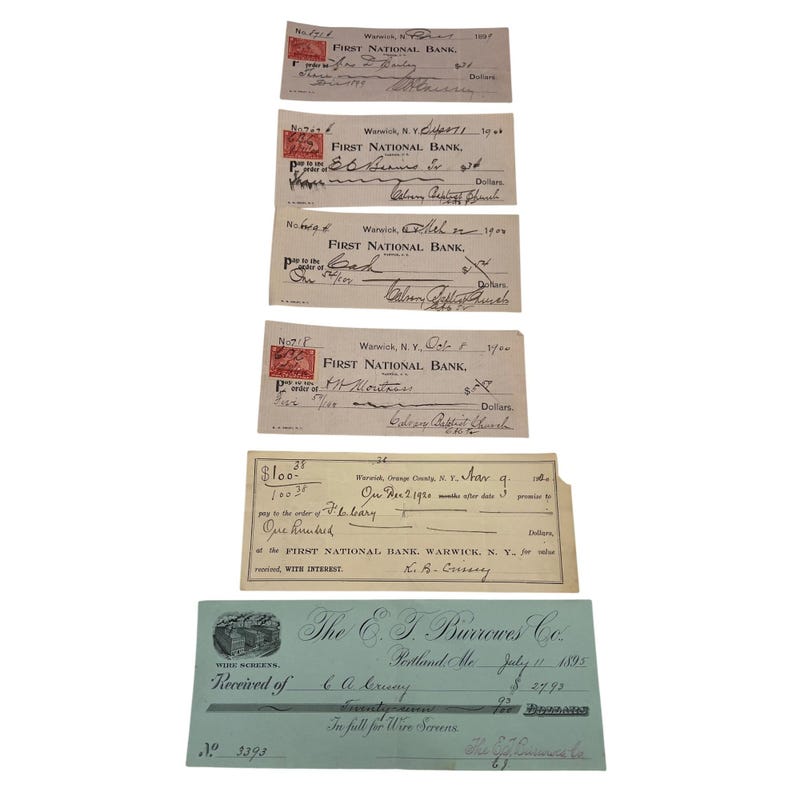 Warwick, N. 1899
FIRST NATIONAL BANK,
WARWICK, N. Y.
order of $3
Three Dollars.
Dec 1899
Warwick, N. Y. Sept 11 1900
FIRST NATIONAL BANK,
WARWICK, N. Y.
Pay to the
order of E C $3
Three Dollars.
Calvary Baptist Church
No. Warwick, Mch 22 1900
FIRST NATIONAL BANK,
WARWICK, N. Y.
Pay to the
order of Cash $1 54
One 54/100 Dollars.
Calvary Baptist Church
No 718 Warwick, N. Y., Oct 8 1900
FIRST NATIONAL BANK,
WARWICK, N. Y.
Pay to the
order of Montross $5 59
Five 59/100 Dollars.
Calvary Baptist Church
$100 38
100 38
Warwick, Orange County, N. Y., Nov 9 1920
On Dec 2 1920 months after date I promise to
pay to the order of F. C. Cary
One Hundred Dollars,
at the FIRST NATIONAL BANK, WARWICK, N. Y., for value
received, WITH INTEREST. K. B. Crissey
The E. T. Burrowes Co.
WIRE SCREENS.
Portland, Me July 11 1895
Received of C A Crissey $ 27.93
Twenty-seven 93/100 DOLLARS
In full for Wire Screens.
No 3393 The E.T. Burrowes Co